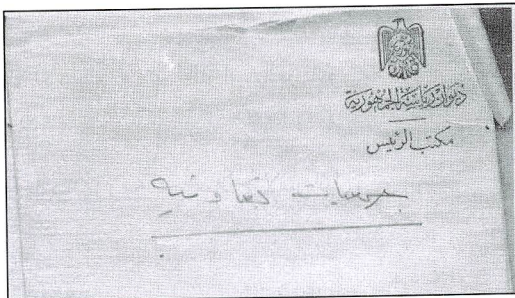 ديوان رياسة الجمهورية
مكتب الرئيس
جمعيات تعاونيه